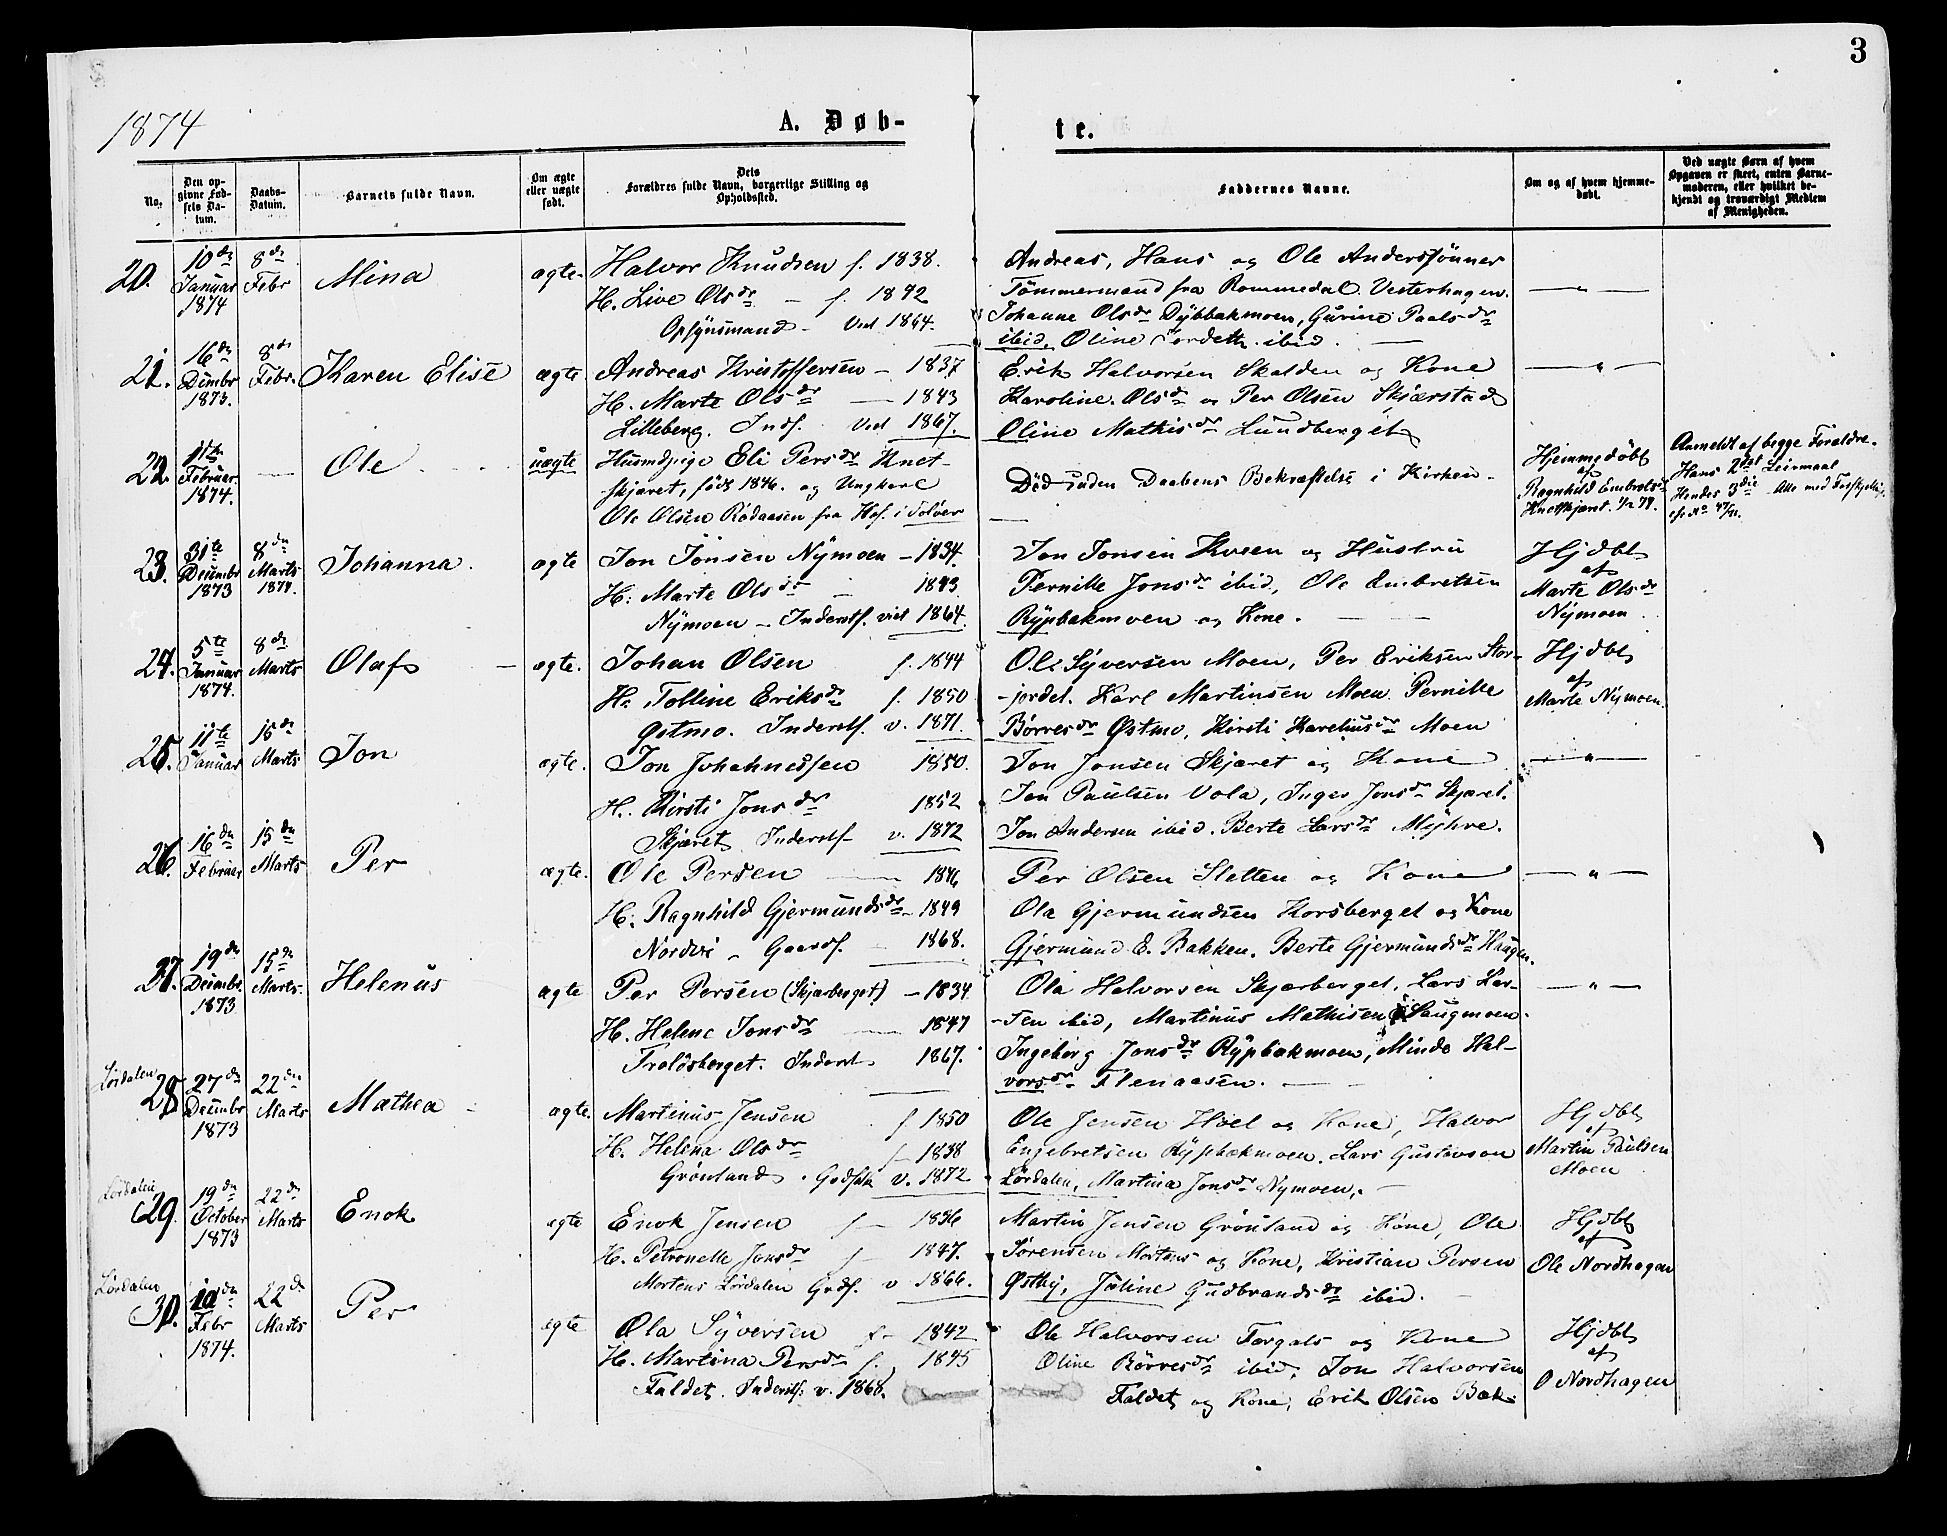 3
1874
A. Døb-
te.
No.
Den op-
givne Fød-
sels Da-
tum.
Daabs-
Datum.
Barnets fulde Navn.
Om ægte
eller uægte
født.
Dets
Forældres fulde Navn, borgerlige Stilling og
Opholdssted.
Faddernes Navne.
Om og af hvem hjemme-
døbt.
Ved uægte Børn af hvem
Opgaven er skeet, enten Barne-
moderen, eller hvilket be-
kjendt og troværdigt Medlem
af Menigheden.
20.
10de
Januar
1874
8de
Febr
Mina
ægte.
Halvor Knudsen f. 1838.
H. Live Olsdr – f. 1842
Opsynsmand – Viet 1864.
Andreas, Hans og Ole Anderssønner
Tømmermand fra Rommedal. Vesterhagen.
Johanne Olsdr Rypbakmoen, Gurine Paalsdr
ibid, Oline ibid. —
— „ —
21.
16de
Decmbr
1873.
8de
Febr.
Karen Elise
ægte
Andreas Kristoffersen – 1837
H. Marte Olsdr — 1843
Lilleberg. Inds. Viet 1867.
Erik Halvorsen Skalden og Kone
Karoline Olsdr og Per Olsen Skjærstad
Oline Mathisdr Lundberget
— „ —
22.
11te
Februar
1874.
—
Ole
uægte
Husmdpige Eli Persdr Knet-
skjæret, født 1846. og Ungkarl
Ole Olsen Rødaasen fra Hof i Solør
Død uden Daabens Bekræftelse i Kirken.
—
Hjemmedøbt
af
Ragnhild Embretsdr
Knetskjæret.
Anmeldt af begge Forældre.
Hans 2det Leiermaal
Hendes 3die
23.
31te
Decmbr
1873
8de
Marts
1874.
Johanna.
ægte
Jon Jonsen Nymoen – 1834.
H: Marte Olsdr – 1843.
Nymoen – Inderst. viet 1864.
Jon Jonsen Kveen og Hustru
Pernille Jonsdr ibid, Ole Embretsen
Rypbakmoen og Kone. —
Hjdbt
af
Marte Olsdr
Nymoen
24.
5te
Januar
1874.
8de
Marts
Olaf —
ægte.
Johan Olsen f. 1844
H. Tolline Eriksdr f. 1850
Østmo. Inderst. v. 1871.
Ole Syversen Moen, Per Eriksen Stor-
-jordet. Karl Martinsen Moen. Pernille
Børresdr Østmo, Kirsti Kareliusdr Moen
Hjdbt
af
Marte Nymoen.
25.
11te
Januar
15de
Marts
Jon
ægte.
Jon Johannessen 1850.
H. Kirsti Jonsdr 1852
Skjæret Inderst – v. 1872
Jon Jonsen Skjæret og Kone
Jon Paulsen Vola, Inger Jonsdr Skjæret.
Jon Andersen ibid. Berte Larsdr Myhre.
— „ —
26.
16de
Februar
15de
Marts
Per
ægte.
Ole Persen — 1846
H. Ragnhild Gjermundsdr – 1849
Nordvi – Gaardf. – 1868.
Per Olsen Sletten og Kone
Ola Gjermundsen Korsberget og Kone
Gjermund E. Bakken. Berte Gjermundsdr Haugen.
— „ —
27.
19de
Decmbr.
1873
15de
Marts.
Helenus
ægte
Per Persen (Skjærberget) – 1834
H. Helene Jonsdr — 1847
Troldsberget. Inderst 1867.
Ola Halvorsen Skjærberget, Lars Lar-
-sen ibid, Martinus Mathisen Saugmoen.
Ingeborg Jonsdr Rypbakmoen, Minde Hal-
vorsdr Flenaasen. —
— „ —
Lørdalen
28
27de
Decmbr
1873
22de
Marts
Mathea –
ægte.
Martinus Jensen f 1850
H. Helena Olsdr f 1838
Grønland . Godsfdr v. 1872
Ole Jensen Hoel og Kone, Halvor
Engebretsen Rypbakmoen. Lars Gustavson
Lørdalen, Martina Jonsdr Nymoen. —
Hjdbt
af
Martin Paulsen
Moen
Lørdalen
29.
19de
October
1873
22de
Marts
Enok
ægte
Enok Jensen f – 1836
H. Petronelle Jonsdr f – 1847.
Mortens Lørdalen Grdf. v 1866.
Martin Jensen Grønland og Kone, Ole
Sørensen Mortens og Kone, Kristian Persen
Østby, Juline Gudbrandsdr ibid. —
Hjdbt
af
Ole Nordhagen
Lørdalen
30.
10de
Febr
1874.
22de
Marts
Per
ægte
Ola Syversen f – 1842
H. Martina Persdr f. 1845
Faldet. Inderst. v. 1868.
Ole Halvorsen Torgals og Kone
Oline Børresdr ibid, Jon Halvorsen
Faldet og Kone, Erik Olsen Bæk-
Hjdbt
af
O Nordhagen